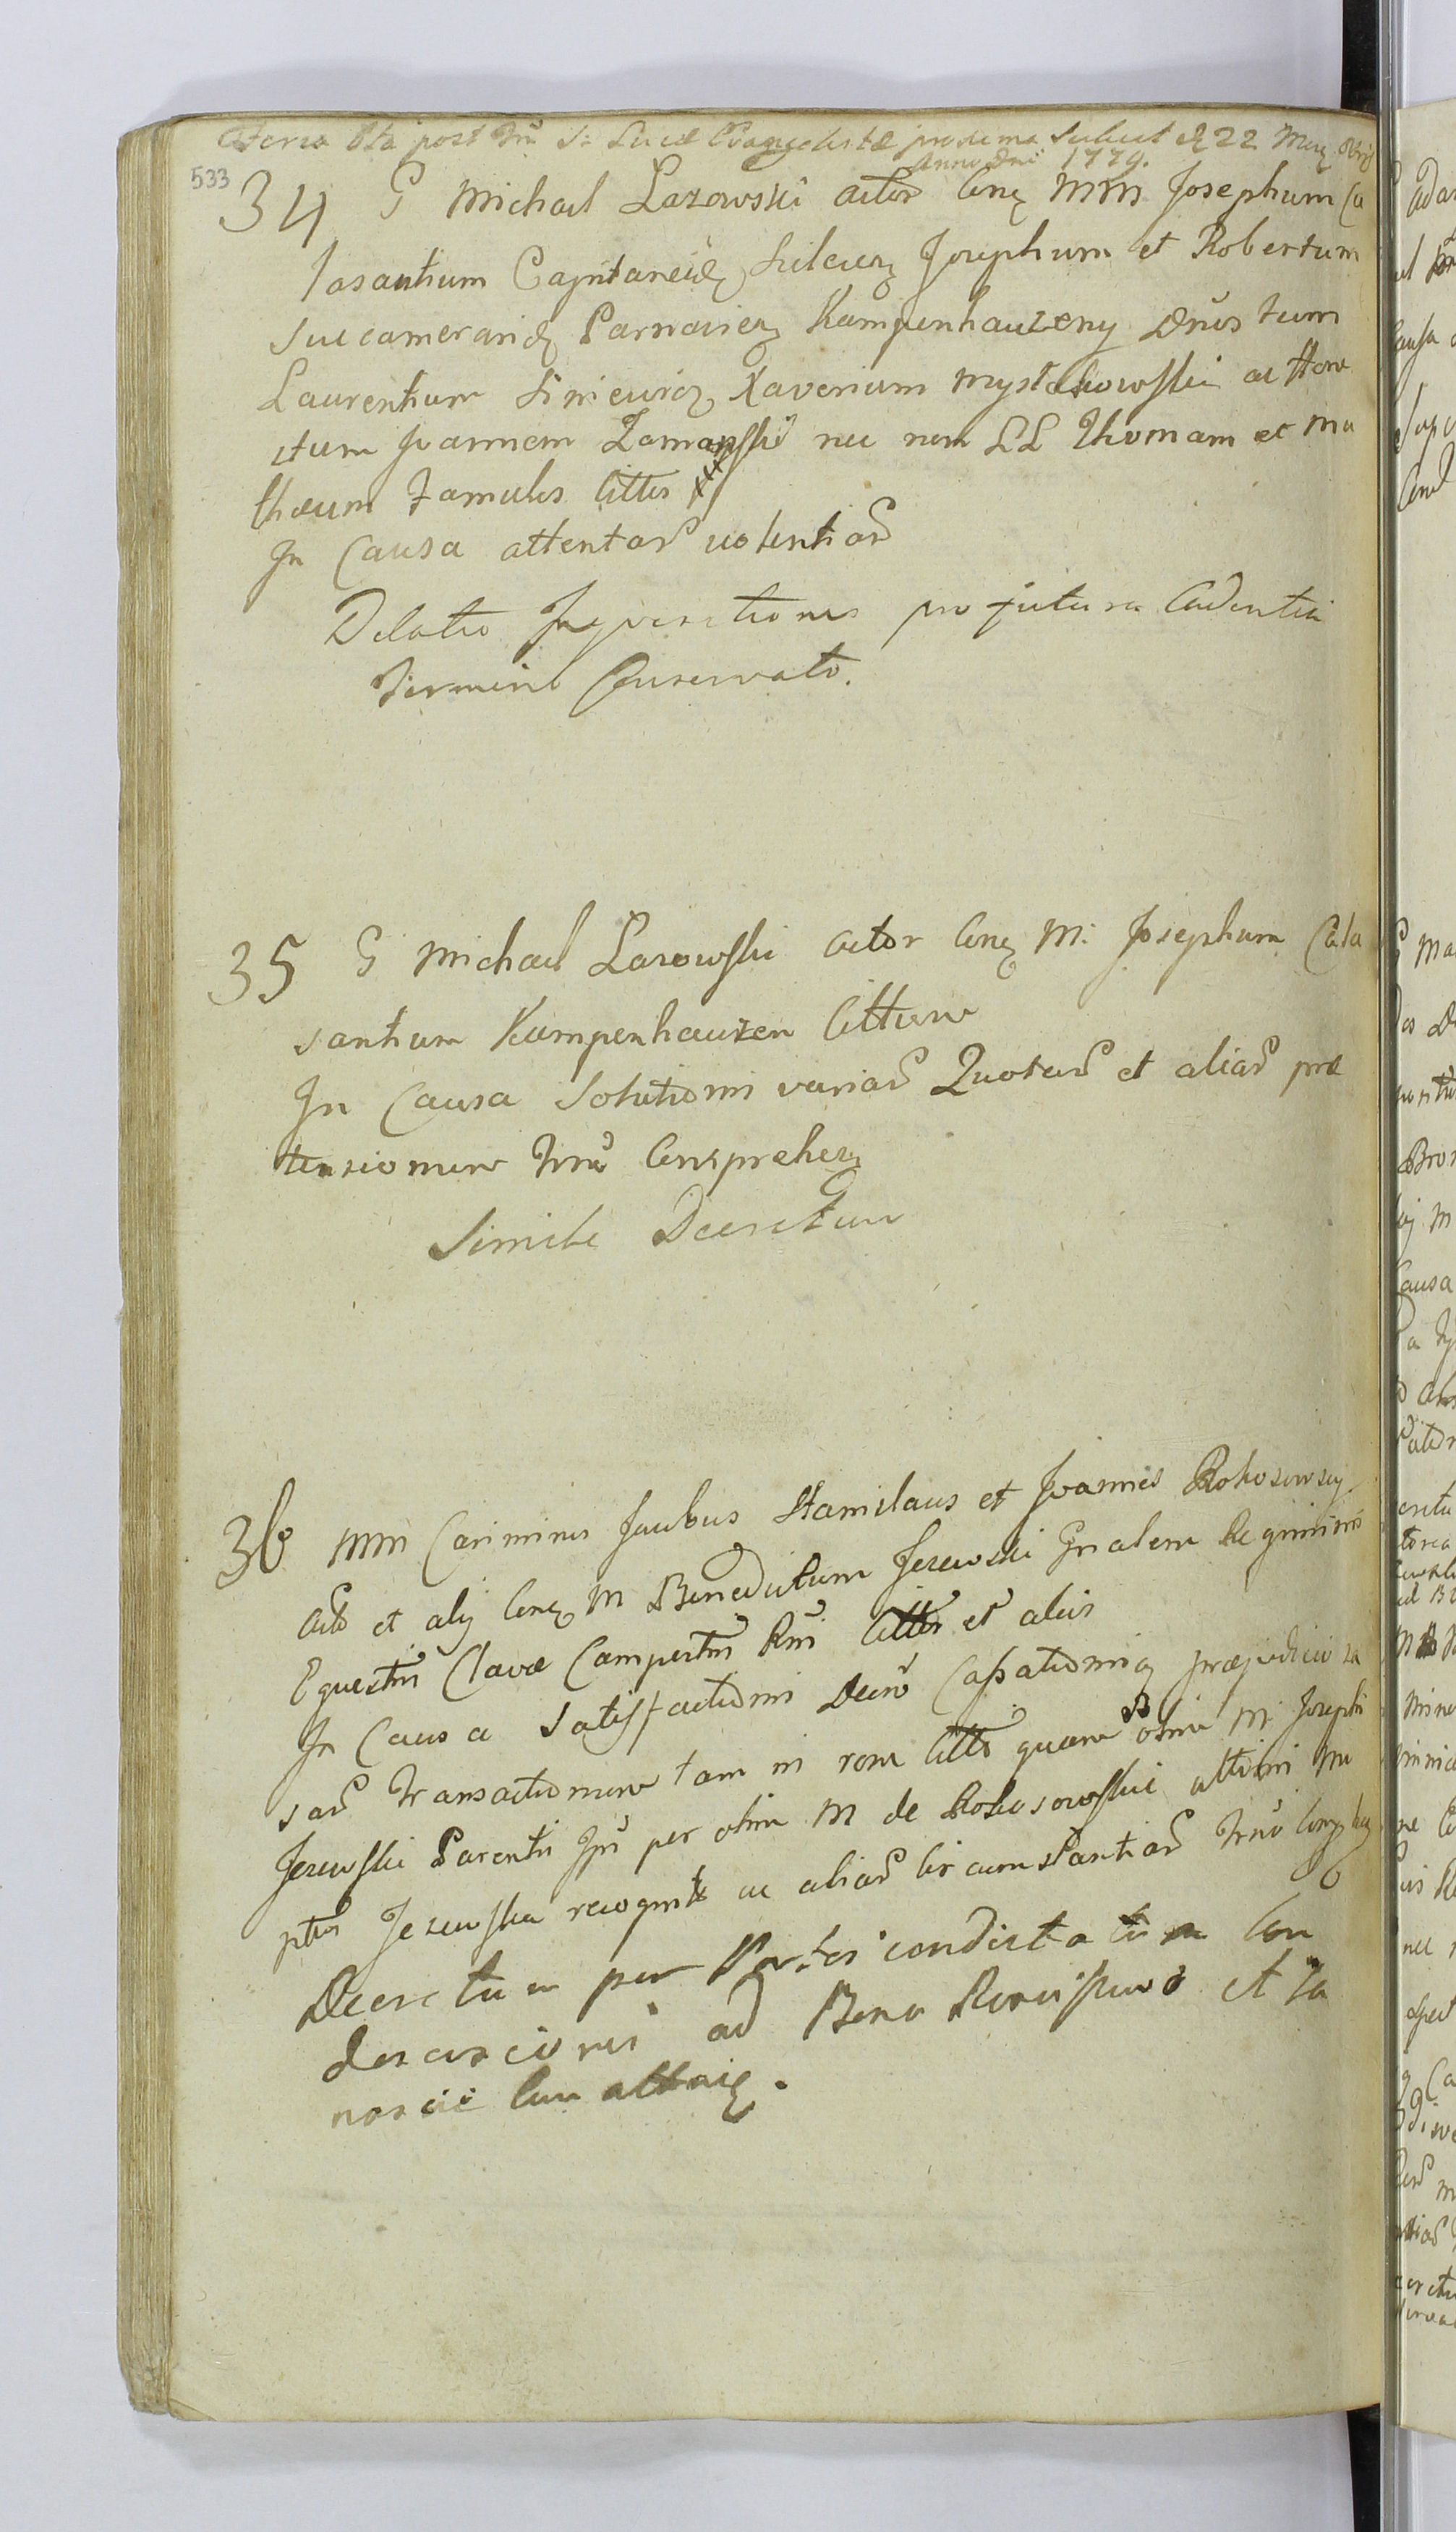 Feria 6ta post Fm S: Lucæ Evangelistæ proxima 22
Anno Dni 1779.
533
34 G Michael Lazowski actor Cong MM Josephum Ca
lasantium Capitaneid Josephum et Robertum
Succamerarid Parnavieg Kampenhauzeny tum
Laurentium Xaverium ac
Joannem nec non LL Thomam et Ma
thæum Famulos Cittos
In Causa attentar violentiar
Dilatio Inquisitionis pro futura Cadentia
Termino Conservato.
35 G Michael Lazowski actor Cong M: Josephum Cala
santium Kampenhauzen Cittum
In Causa Solutionis variar Quotar et aliar præ
tensionum Comprehes
Simile Decretum
36 MM Casimirus Jacobus Stanislaus et Joannes Rokosowscy
acto et alij Cong M Benedictum Jezewski Gnalem Regiminis
Equestris Clavæ Campestris Rni et aliis
In Causa Satisfactionis Decro Cassationisq præjudicio
sar Transactionum tam in rem Citti quam olim M: Josephi
Jezewski Parentis Ipsi per olim M de Rokosowskie
Jezewska recognit ac aliar circumstantiar
Decretum per Partes condictatum Con
descensionis ad Bona et